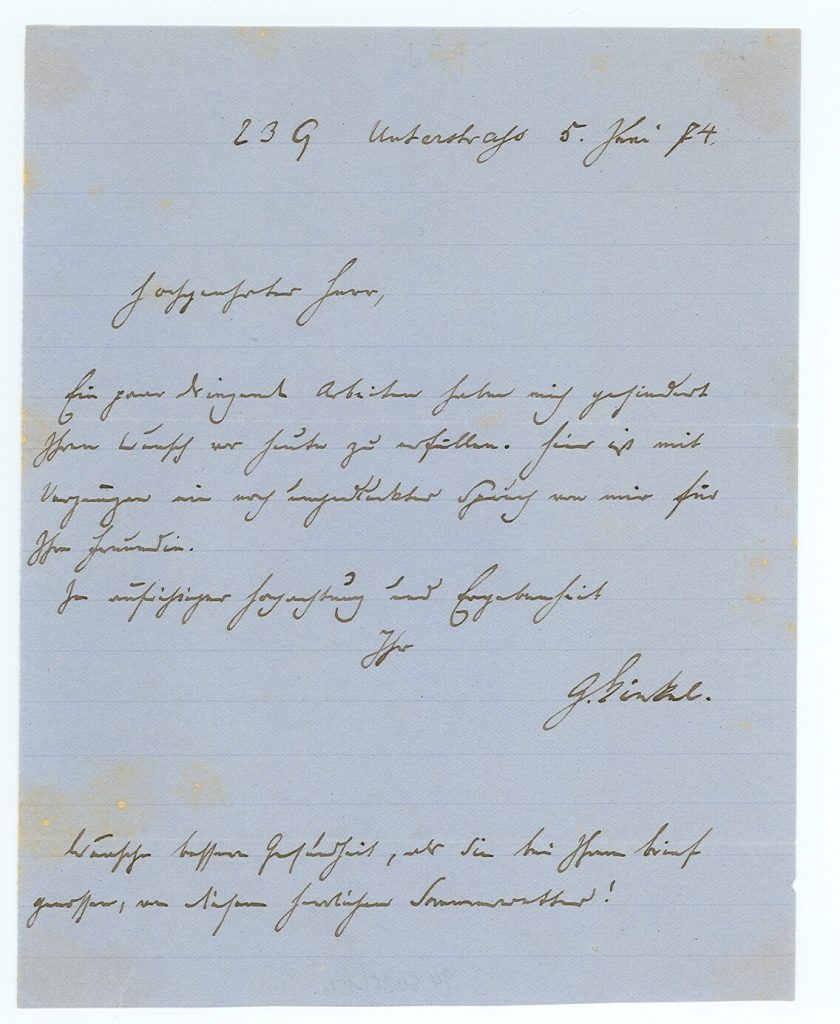 239 Unterstrass 5. Juni 74.
Hochgeehrter Herr,
Ein paar dringende Arbeiten haben mich gehindert
Ihren Wunsch vor heute zu erfüllen. Hier ist mit
Vergnügen ein noch ungedruckter Spruch von mir für
Ihre Freundin.
In aufrichtiger Hochachtung und Ergebenheit
Ihr
G. Kinkel.
Wünsche bessere Gesundheit, als Sie bei Ihrem Brief
genossen, von diesem herrlichen Sommerwetter!